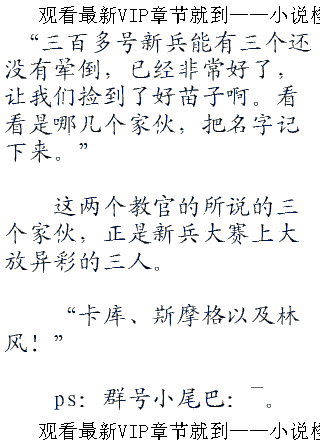 观看最新VIP章节就到——小说检
“三百多号新兵能有三个还
没有晕倒，已经非常好了，
让我们捡到了好苗子啊。看
看是哪几个家伙，把名字记
下来。”
这两个教官的所说的三
个家伙，正是新兵大赛上大
放异彩的三人。
“卡库、斯摩格以及林
风！”
ps：群号小尾巴：￣。
观看最新VIP章节就到——小说检